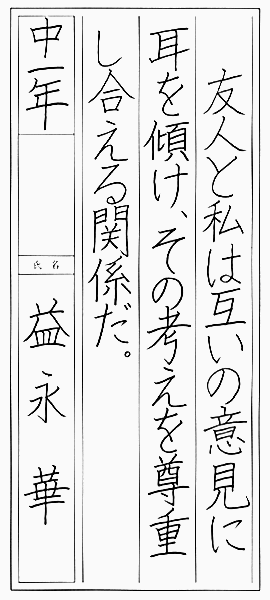 友人と私は互いの意見に
耳を傾け、その考えを尊重
し合える関係だ。
中一年
氏名
益永華